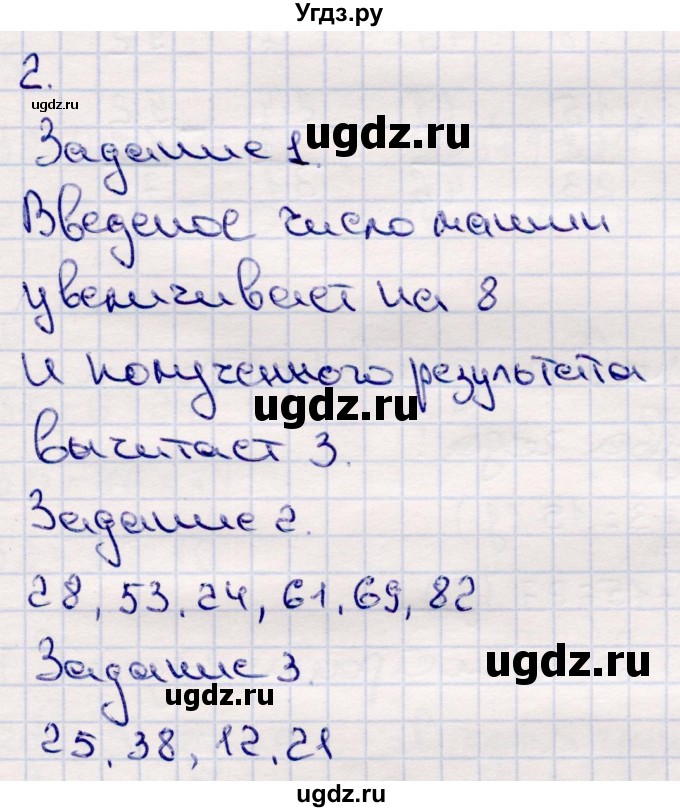 Угдз.ру
2.
ugdz.ru
ugdz.ru
Задание 1.
Введеное число машин
увеличивает на 8
и полученного результата
ugdz.ru
вычитает 3.
Задание 2.
28, 53. 24, 61. 69, 82
Задание 3.
ugdz.ru
ugdz.ru
25. 38, 12. 21
ugdz.ru